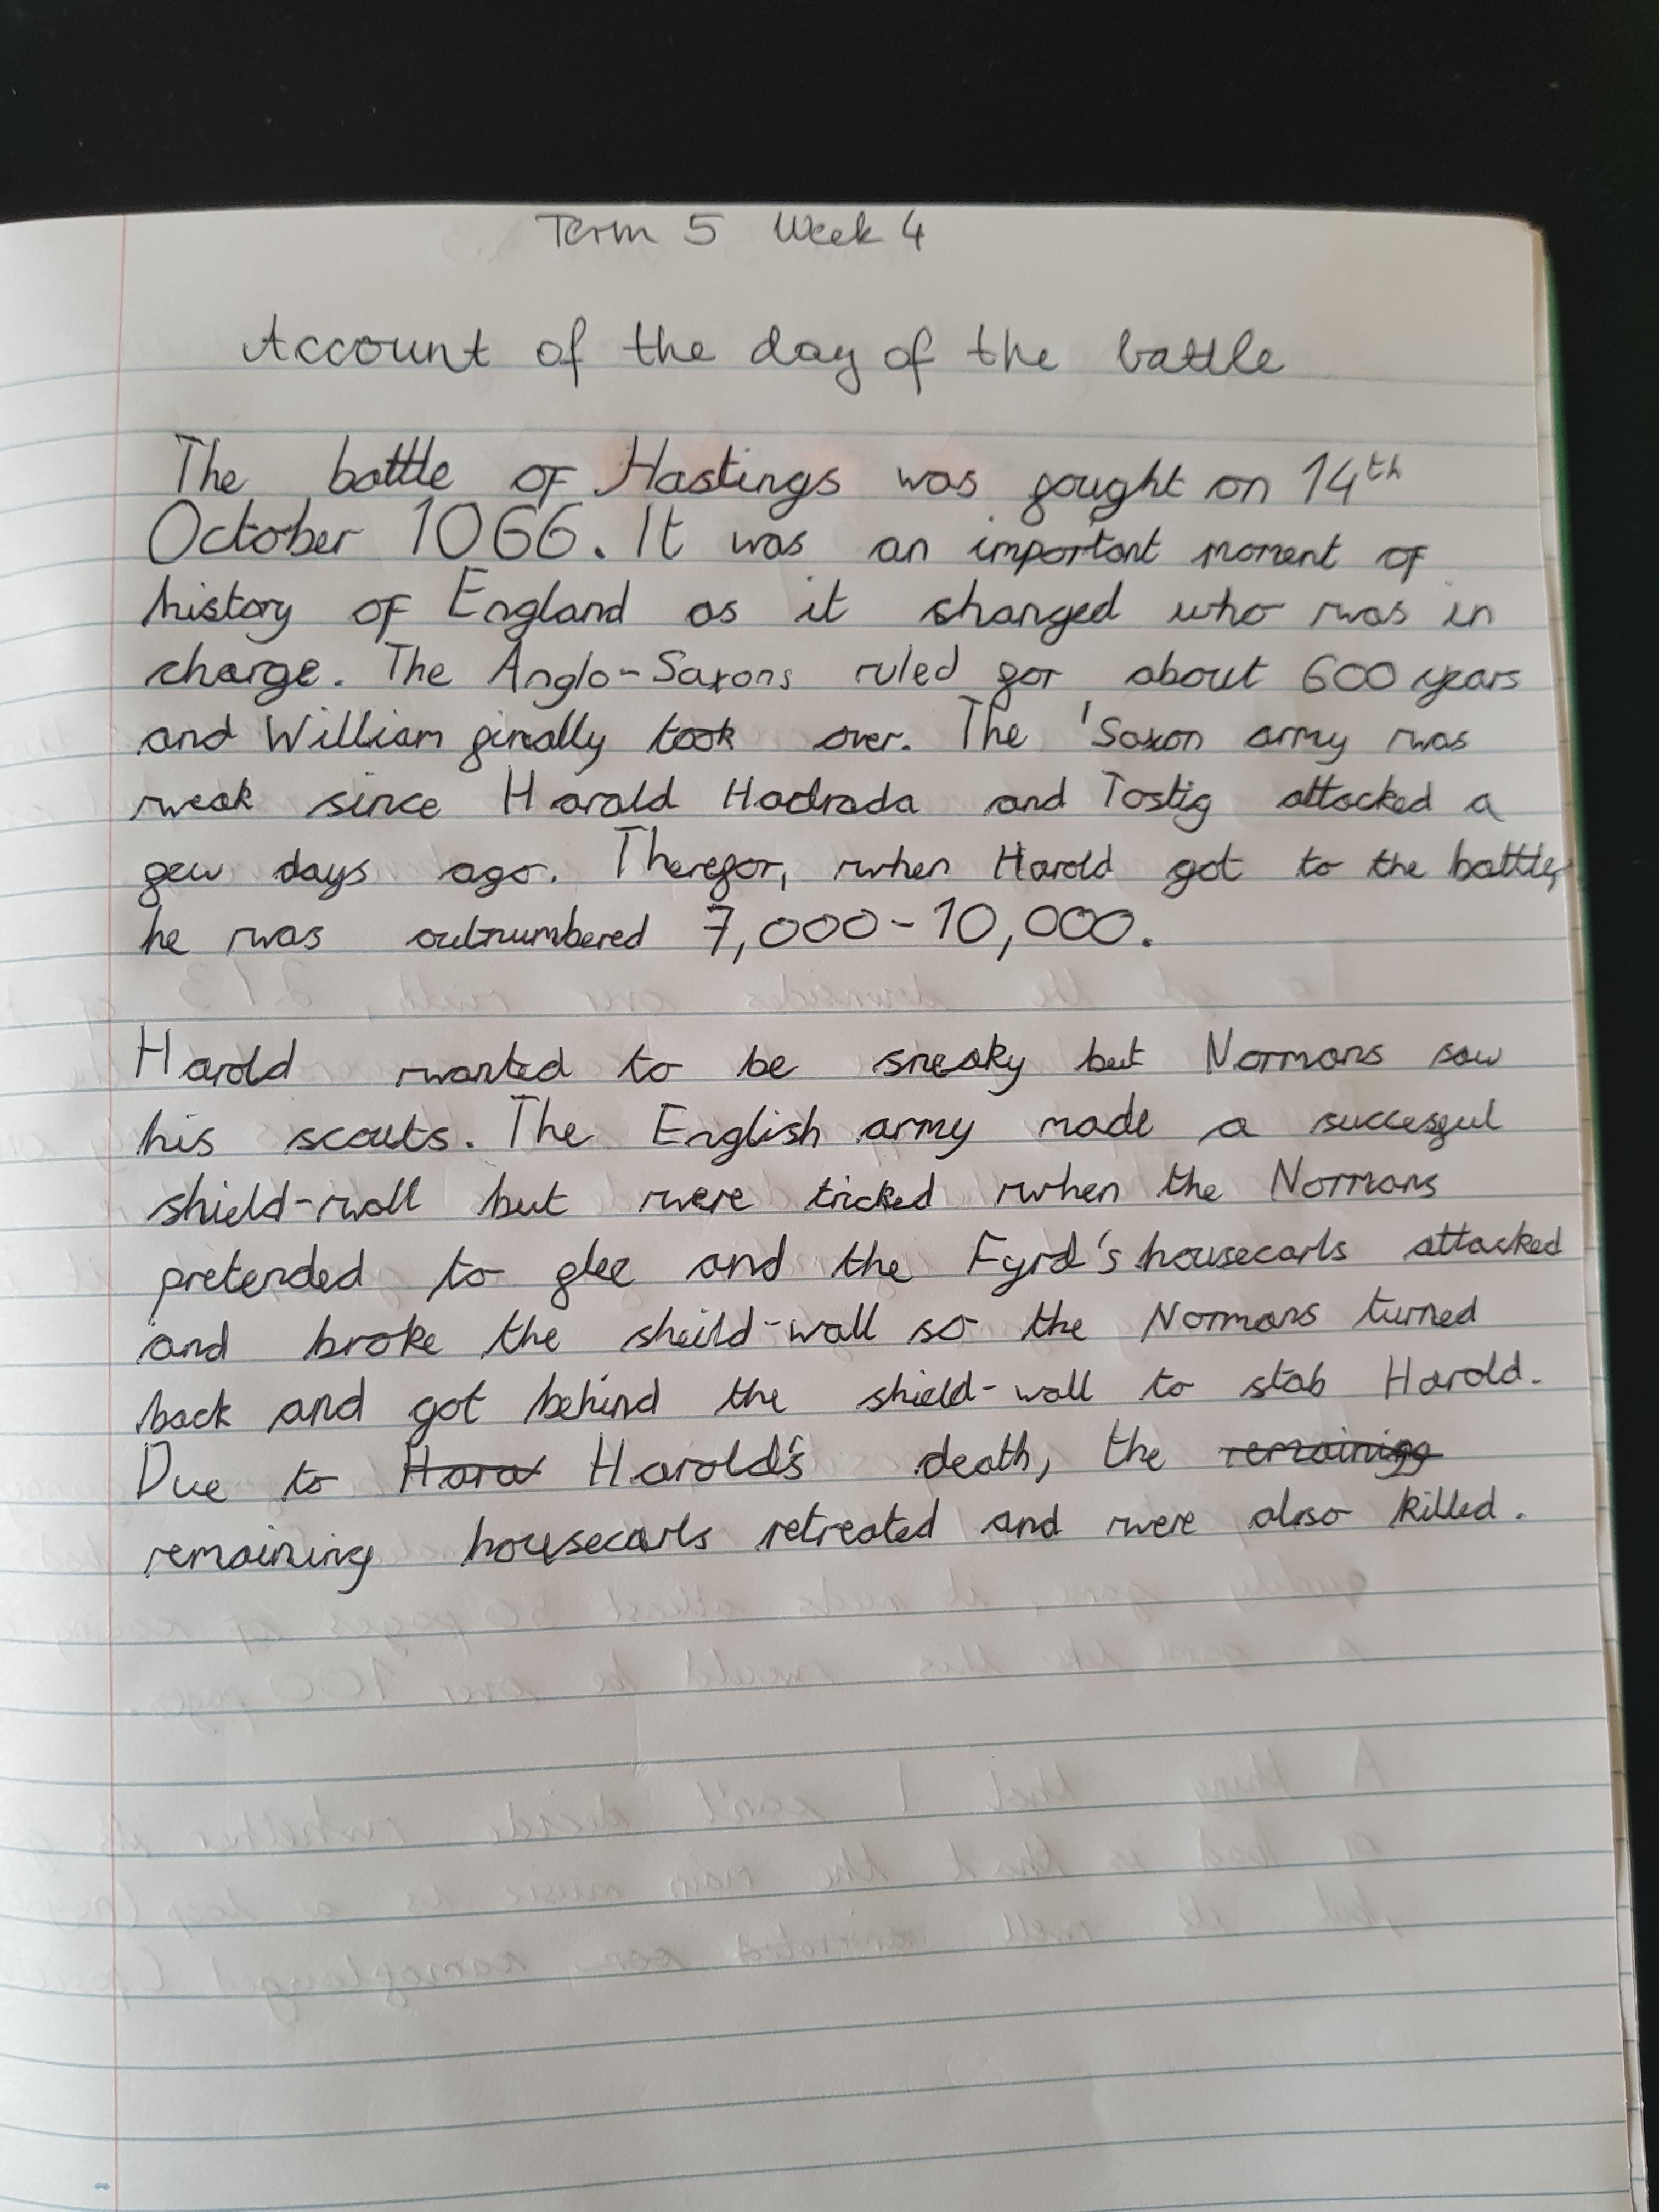 Term 5 Week 4
Account of the day of the battle
The battle of Hastings was fought on 14th
October 1066. It was an important moment of
history of England as it changed who was in
charge. The Anglo-Saxons ruled for about 600 years
and William finally took over. The 'Saxon army was
weak since Harald Hadrada and Tostig attacked a
few days ago. Therefor, when Harold got to the battle,
he was outnumbered 7,000-10,000.
Harold wanted to be sneaky but Normans saw
his scouts. The English army made a succesful
shield-wall but were tricked when the Normans
pretended to flee and the Fyrd's housecarls attacked
and broke the sheild-wall so the Normans turned
back and got behind the shield-wall to stab Harold.
Due to Hara Harold's death, the remainigg
remaining housecarls retreated and were also killed.